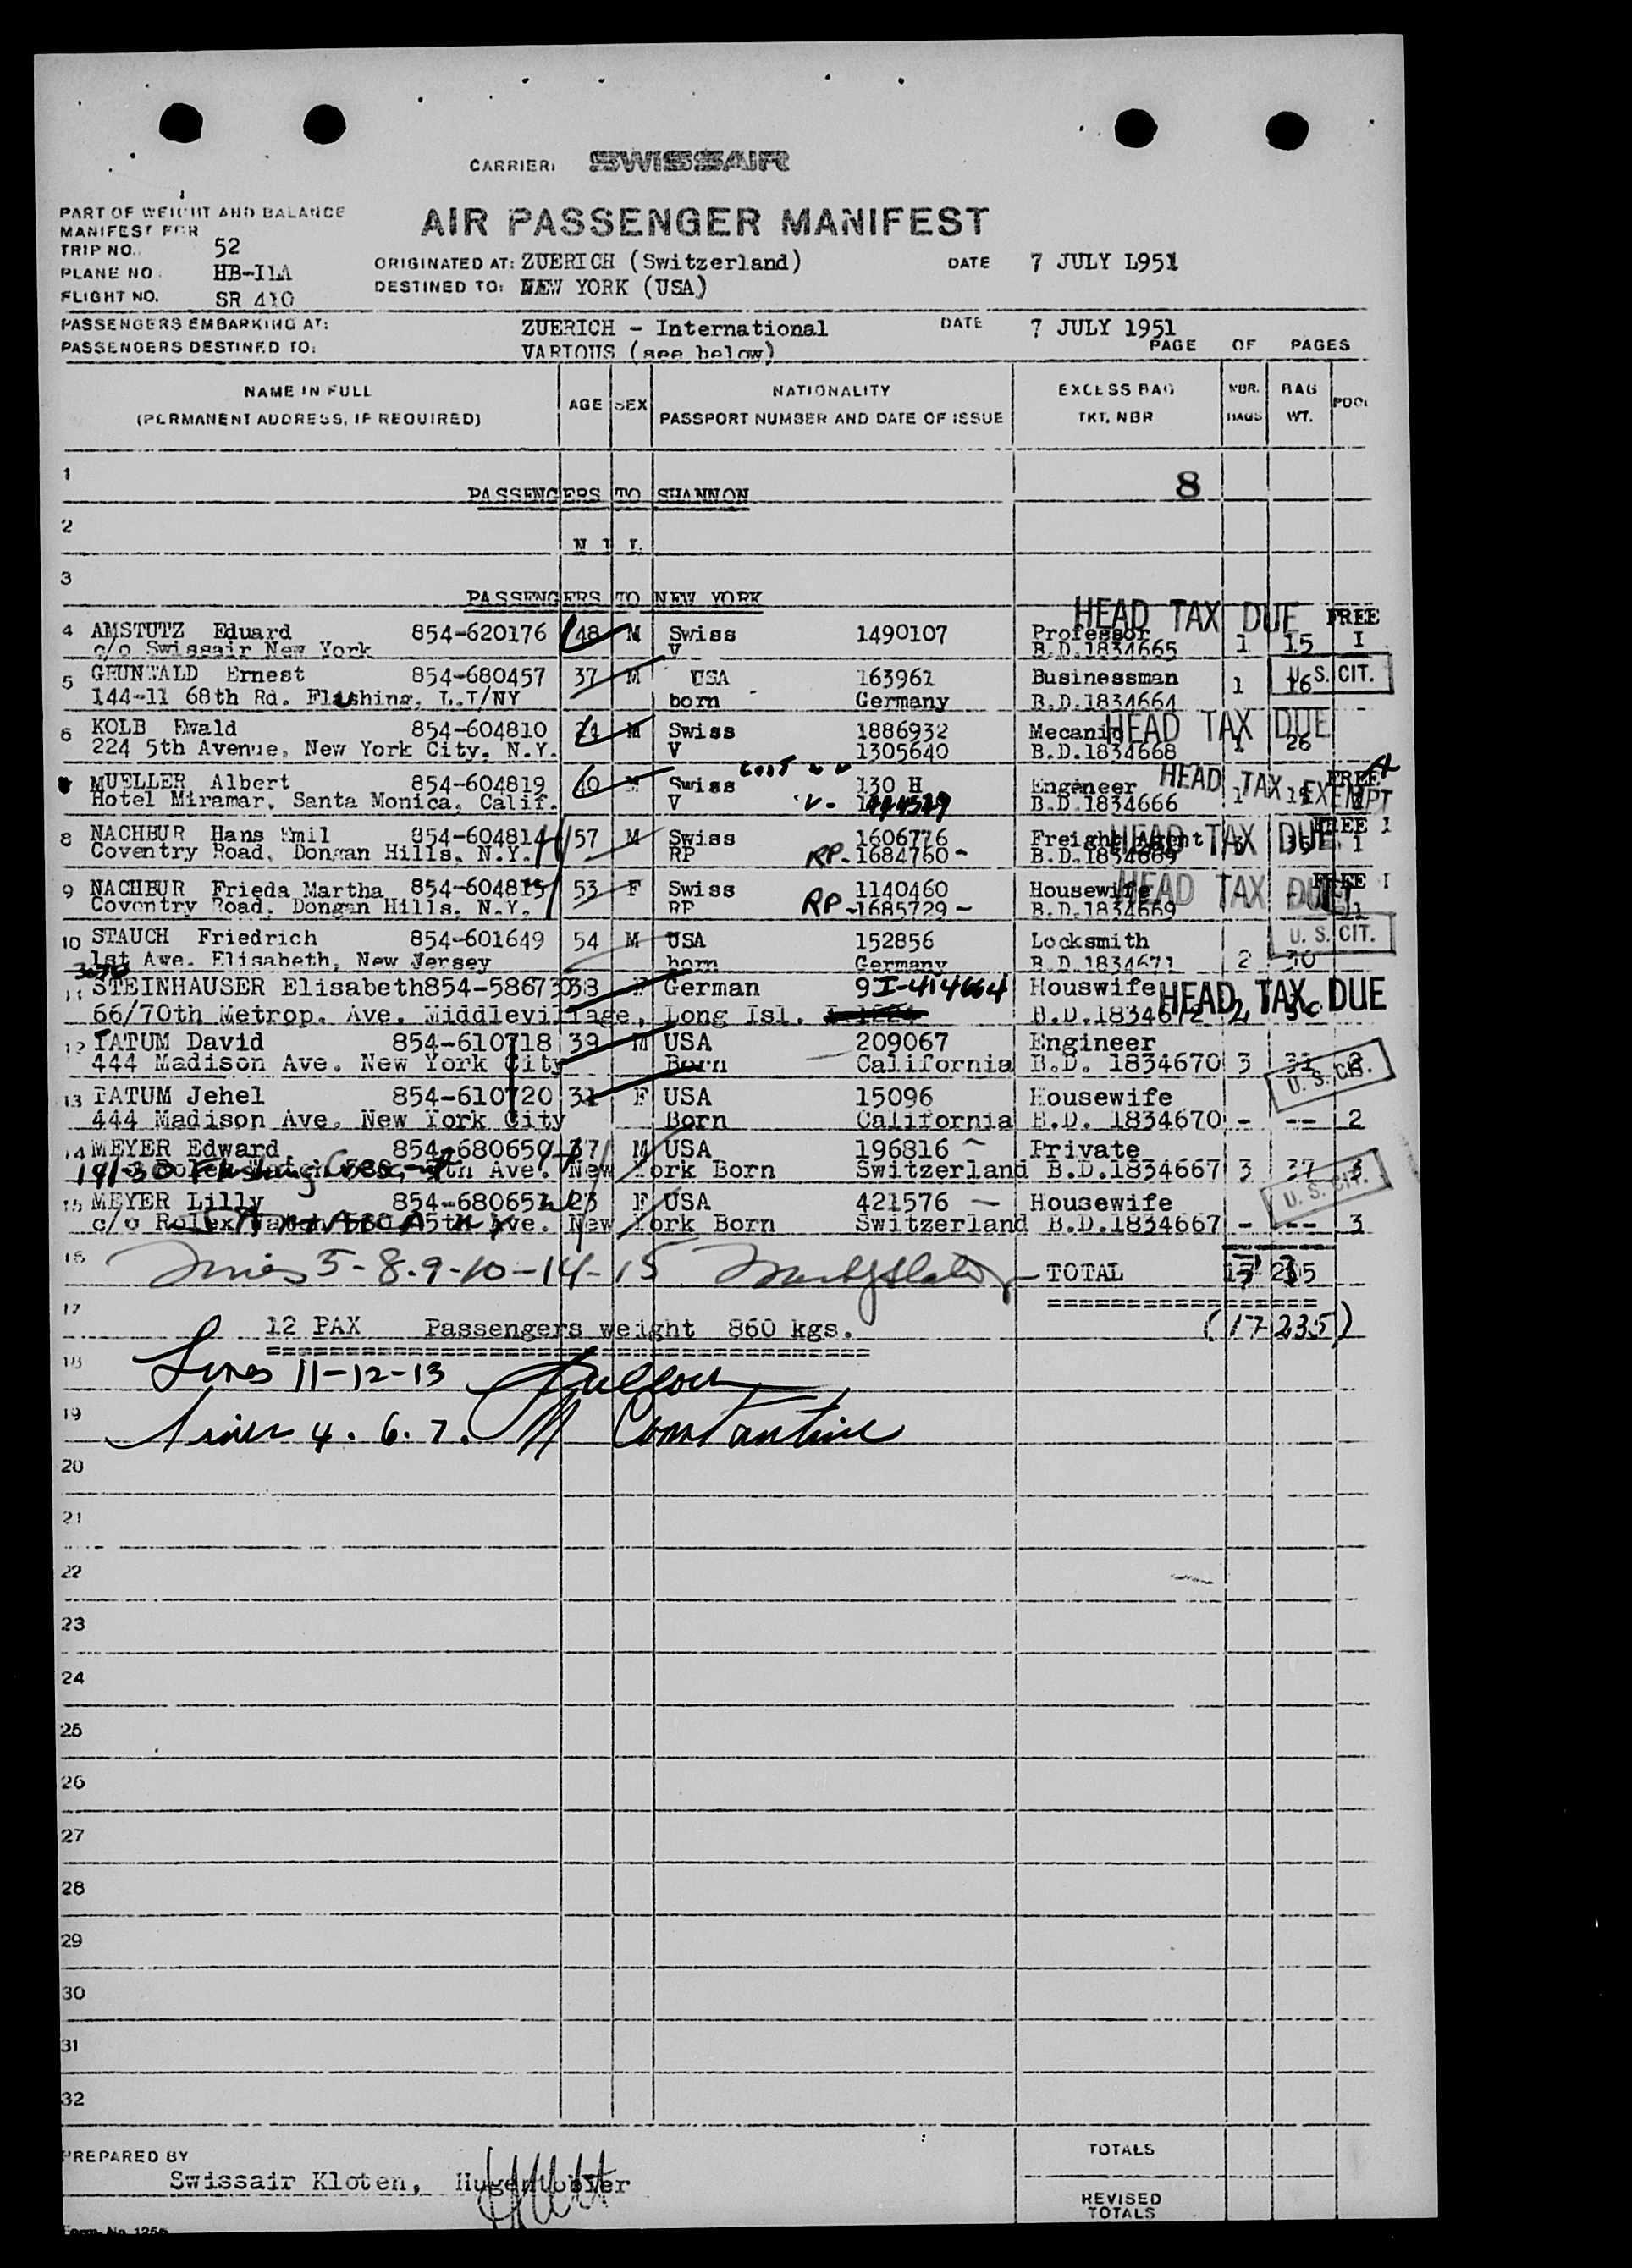 CARRIER: SWISSAIR
PART OF WEIGHT AND BALANCE
MANIFEST FOR
AIR PASSENGER MANIFEST
TRIP NO. 52
ORIGINATED AT: ZUERICH (Switzerland) DATE 7 JULY 1951
PLANE NO. HB-ILA
DESTINED TO: NEW YORK (USA)
FLIGHT NO. SR 410
PASSENGERS EMBARKING AT: ZUERICH - International DATE 7 JULY 1951
PASSENGERS DESTINED TO: VARIOUS (see below) PAGE OF PAGES
NAME IN FULL AGE SEX NATIONALITY EXCESS BAG NBR. BAG POOL
(PERMANENT ADDRESS, IF REQUIRED) PASSPORT NUMBER AND DATE OF ISSUE TKT. NBR BAGS WT.
1 PASSENGERS TO SHANNON 8
2 N I L
3 PASSENGERS TO NEW YORK
HEAD TAX DUE FREE
4 AMSTUTZ Eduard 854-620176 48 M Swiss 1490107 Professor 1 15 I
c/o Swissair New York V B.D.1834665
5 GRUNWALD Ernest 854-680457 37 M USA 163961 Businessman 1 16 U. S. CIT.
144-11 68th Rd. Flushing, L.I/NY born Germany B.D.1834664
6 KOLB Ewald 854-604810 M Swiss 1886932 Mecanic HEAD TAX DUE
224 5th Avenue, New York City. N.Y. V 1305640 B.D.1834668 1 26
MUELLER Albert 854-604819 40 M Swiss 130 H Engeneer HEAD TAX EXEMPT FREE
Hotel Miramar, Santa Monica, Calif. V V- B.D.1834666 1
8 NACHBUR Hans Emil 854-604814 57 M Swiss 1606776 Freight Agent HEAD TAX DUE FREE 1
Coventry Road, Dongan Hills. N.Y. RP RP-1684760- B.D.1834669 1
9 NACHBUR Frieda Martha 854-604815 53 F Swiss 1140460 Housewife HEAD TAX DUE FREE 1
Coventry Road. Dongan Hills. N.Y. RP RP-1685729- B.D.1834669
10 STAUCH Friedrich 854-601649 54 M USA 152856 Locksmith U. S. CIT.
1st Awe. Elisabeth, New Jersey born Germany B.D.1834671 2 30
11 STEINHAUSER Elisabeth 854-586730 38 F German I-414664 Houswife HEAD TAX DUE
66/70th Metrop. Ave. Middlevillage, Long Isl. B.D.1834672 2
12 TATUM David 854-610718 39 M USA 209067 Engineer
444 Madison Ave. New York City Born California B.D. 1834670 3 31 2 U. S. CIT.
13 TATUM Jehel 854-610720 31 F USA 15096 Housewife
444 Madison Ave. New York City Born California B.D. 1834670 - -- 2
14 MEYER Edward 854-680650 37 M USA 196816 Private
141-30 5th Ave. New York Born Switzerland B.D.1834667 3 37 3 U. S. CIT.
15 MEYER Lilly 854-680651 23 F USA 421576 - Housewife
c/o Rolex Watch 580 5th Ave. New York Born Switzerland B.D.1834667 - -- 3
16 Lines 5-8.9-10-14-15 TOTAL
17 12 PAX Passengers weight 860 kgs. (17 235)
18 Lines 11-12-13
19 Lines 4. 6. 7. M Constantine
20
21
22
23
24
25
26
27
28
29
30
31
32
PREPARED BY TOTALS
Swissair Kloten, Hugentobler
REVISED
TOTALS
Form No.